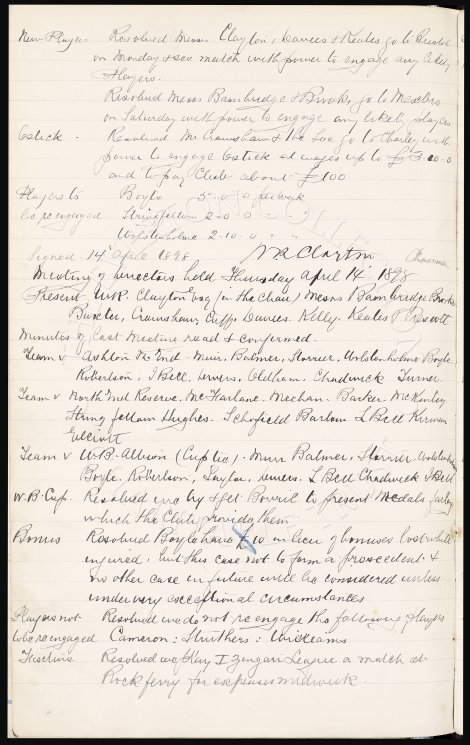 New Players Resolved Messrs Clayton, Davies & Keates go to Bristol
on Monday & see match with power to engage any likely
Players.
Resolved Messrs Bainbridge & Brooks go to
on Saturday with power to engage any likely players
Estick. Resolved Mr Crawshaw & the Sec go to Chorley with
power to engage Estick at wages up to £3-0-0
and to pay Club about £100
Players to Boyle 5-0-0 per week
be re engaged Stringfellow 2-0-0 " "
Wolstenholme 2-10-0 " "
Signed 14 April 1898 W R Clayton Chairman
Meeting of Directors held Thursday April 14 1898
Present W.R. Clayton Esq (in the chair) Messrs Bainbridge Brooks
Buxeter, Crawshaw, Cuffs Davies. Kelly. Keates &
Minutes of last Meeting read & confirmed.
Team v Ashton N. End - Muir, Balmer, Storrier, Wolstenholme Boyle.
Robertson, J Bell, Divers, Oldham. Chadwick Turner.
Team v North End Reserve. McFarlane. Meechan. Barker. McKinley
Stringfellow Hughes. Schofield Barlow L Bell Kirwan
Elliott
Team v W.B. Albion (Cup tie). Muir Balmer, Storrier, Wolstenholme
Boyle. Robertson, Taylor, Divers. L Bell Chadwick J Bell
W.B. Cup. Resolved we try & get Bovril to present medals for
which the Club provide them.
Bonus Resolved Boyle have £10 in lieu of bonuses lost whilst
injured, but this case not to form a preecedent. &
no other case in future will be considered unless
under very exceptional circumstances
Players not Resolved we do not re engage the following players
to be re engaged Cameron: Struthers: Williams
Fixture Resolved we play I Zingari League a match at
Rockferry for expenses midweek.